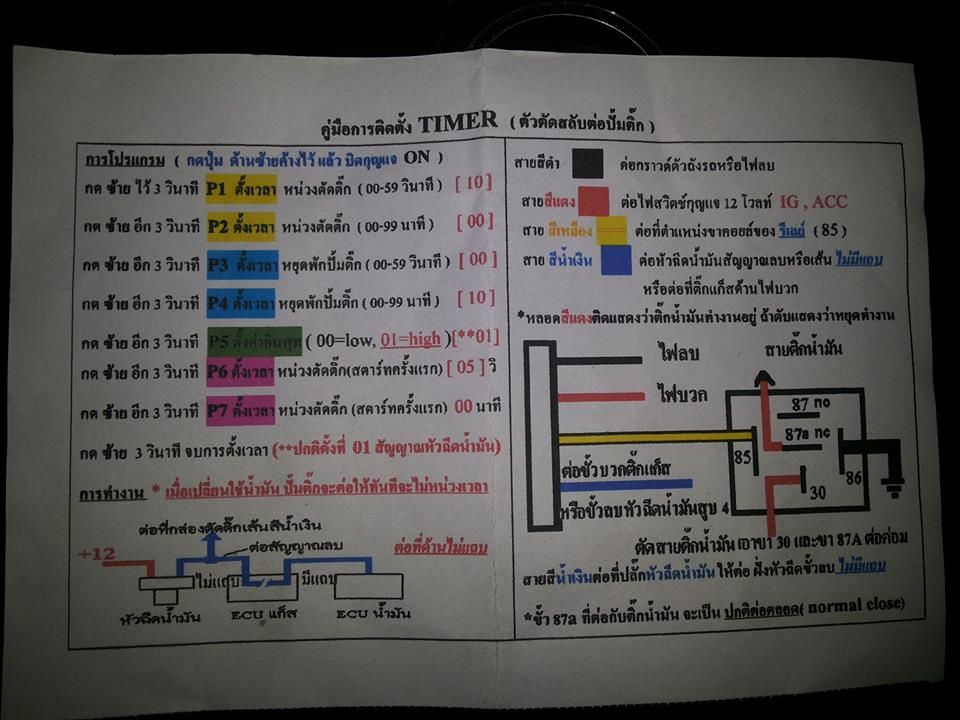 คู่มือการติดตั้ง TIMER ( ตัวตัดสลับต่อปั้มติ๊ก )
การโปรแกรม ( กดปุ่ม ด้านซ้ายค้างไว้ แล้ว บิดกุญแจ ON )
กด ซ้าย ไว้ 3 วินาที P1 ตั้งเวลา หน่วงตัดติ๊ก ( 00-59 วินาที ) [ 10 ]
กด ซ้าย อีก 3 วินาที P2 ตั้งเวลา หน่วงตัดติ๊ก ( 00-99 นาที ) [ 00 ]
กด ซ้าย อีก 3 วินาที P3 ตั้งเวลา หยุดพักปั้มติ๊ก ( 00-59 วินาที ) [ 00 ]
กด ซ้าย อีก 3 วินาที P4 ตั้งเวลา หยุดพักปั้มติ๊ก ( 00-99 นาที ) [ 10 ]
กด ซ้าย อีก 3 วินาที P5 ตั้งค่าอินพุท ( 00=low, 01=high )[**01]
กด ซ้าย อีก 3 วินาที P6 ตั้งเวลา หน่วงตัดติ๊ก(สตาร์ทครั้งแรก) [ 05 ] วิ
กด ซ้าย อีก 3 วินาที P7 ตั้งเวลา หน่วงตัดติ๊ก (สตาร์ทครั้งแรก) 00 นาที
กด ซ้าย 3 วินาที จบการตั้งเวลา (**ปกติตั้งที่ 01 สัญญาณหัวฉีดน้ำมัน)
การทำงาน * เมื่อเปลี่ยนใช้น้ำมัน ปั้มติ๊กจะต่อให้ทันทีจะไม่หน่วงเวลา
ต่อที่กล่องตัดติ๊กเส้น สีน้ำเงิน
ต่อสัญญาณลบ
ต่อที่ด้านไม่แถบ
+12
ไม่แถบ
มีแถบ
หัวฉีดน้ำมัน
ECU แก๊ส
ECU น้ำมัน
สายสีดำ ต่อกราวด์ตัวถังรถหรือไฟลบ
สายสีแดง ต่อไฟสวิตช์กุญแจ 12 โวลท์ IG , ACC
สาย สีเหลือง ต่อที่ตำแหน่งขาคอยล์ของ รีเลย์ ( 85 )
สาย สีน้ำเงิน ต่อหัวฉีดน้ำมันสัญญาณลบหรือเส้น ไม่มีแถบ
หรือต่อที่ติ๊กแก๊สด้านไฟบวก
*หลอดสีแดงติดแสดงว่าติ๊กน้ำมันทำงานอยู่ ถ้าดับแสดงว่าหยุดทำงาน
ไฟลบ
สายติ๊กน้ำมัน
ไฟบวก
87 no
87a nc
85
86
30
ต่อขั้ว บวกติ๊กแก๊ส
หรือขั้วลบหัวฉีดน้ำมันสูบ 4
ตัดสายติ๊กน้ำมัน เอาขา 30 และขา 87A ต่อคร่อม
สายสีน้ำเงินต่อที่ปลั๊กหัวฉีดน้ำมัน ให้ต่อ ฝั่งหัวฉีดขั้วลบ ไม่มีแถบ
*ขั้ว 87a ที่ต่อกับติ๊กน้ำมัน จะเป็น ปกติต่อตลอด( normal close)